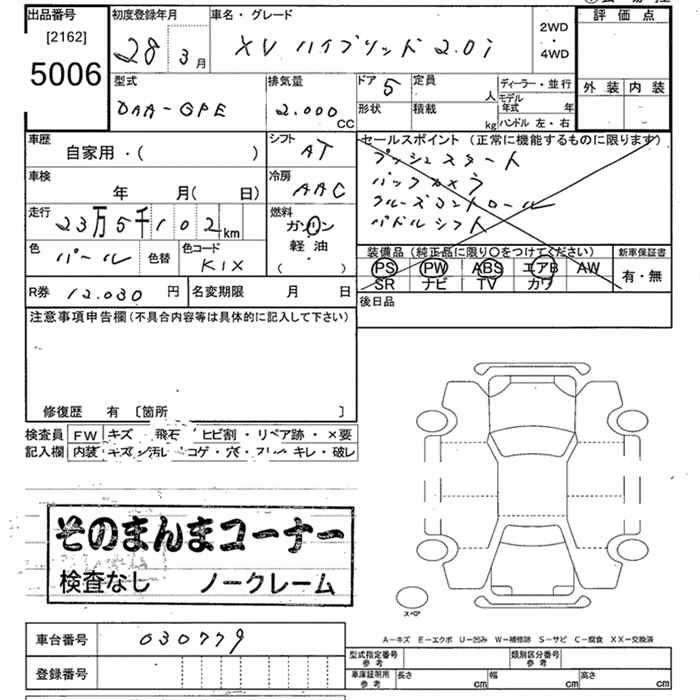 出品番号
[2162]
5006
初度登録年月
28 3月
車名・グレード
XV ハイブリッド 2.0i
2WD
・
4WD
評価点
外装 内装
型式
DAA-GPE
排気量
2.000
CC
ドア 5
定員
人
形状
積載
kg
ディーラー・並行
モデル
年式 年
ハンドル 左・右
車歴
自家用・( )
シフト
AT
セールスポイント (正常に機能するものに限ります)
プッシュスタート
バックカメラ
クルーズコントロール
パドルシフト
車検
年 月( 日)
冷房
AAC
走行
23万5千102km
燃料
ガソリン
軽油
( ・ )
色 パール
色替
色コード
KIX
装備品 (純正品に限り〇をつけてください)
PS PW ABS エアB AW
SR ナビ TV カワ
新車保証書
有・無
R券 12.030 円
名変期限 月 日
後日品
注意事項申告欄 (不具合内容等は具体的に記入して下さい)
修復歴 有 [箇所 ]
検査員
記入欄
FW キズ・飛石・ヒビ割・リペア跡・×要
内装・キズ・汚レ・コゲ・穴・スレ・キレ・破レ
そのまんまコーナー
検査なし ノークレーム
スペア
A－キズ E－エクボ U－凹み W－補修跡 S－サビ C－腐食 XX－交換済
車台番号 030779
登録番号
型式指定番号
参考
類別区分番号
参考
車庫証明用
参考
長さ cm 幅 cm 高さ cm